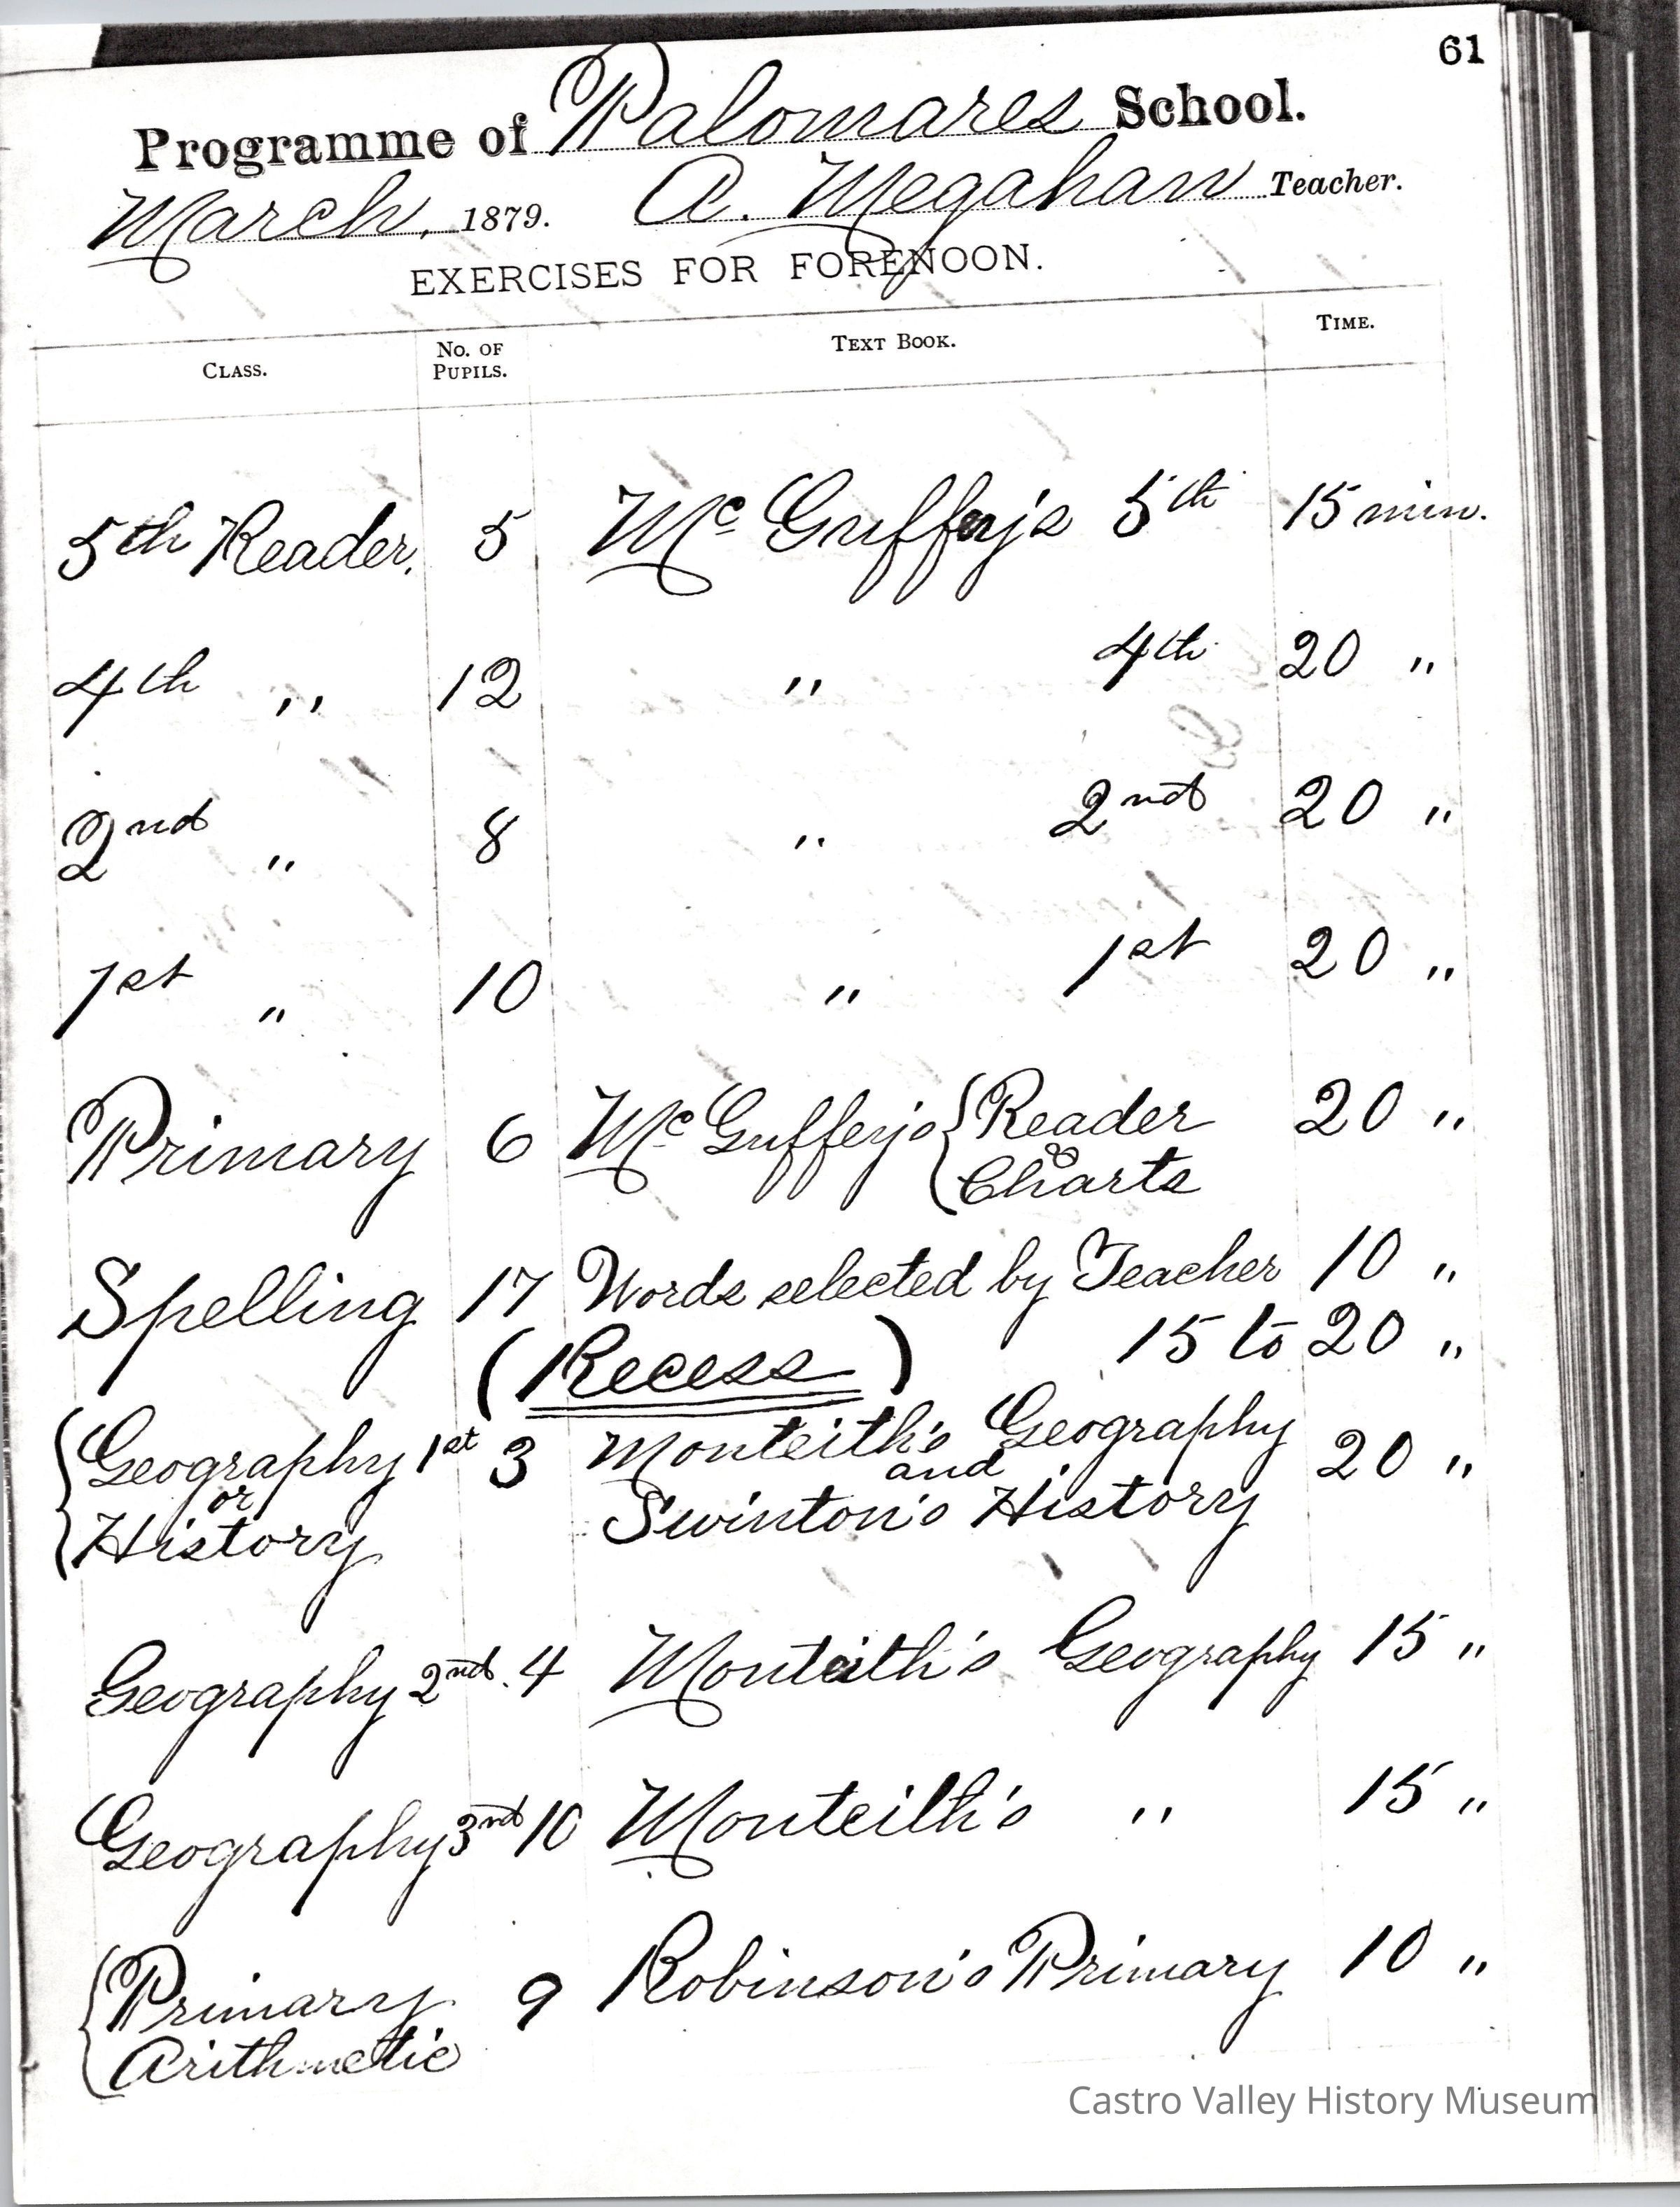 61
Programme of Palomares School.
March, 1879. A. Megahan Teacher.
EXERCISES FOR FORENOON.
CLASS. NO. OF PUPILS. TEXT BOOK. TIME.
5th Reader. 5 Mc Guffey's 5th 15 min.
4th " 12 " 4th 20 "
2nd " 8 " 2nd 20 "
1st " 10 " 1st 20 "
Primary 6 Mc Guffey's { Reader & Charts 20 "
Spelling 17 Words selected by Teacher 10 "
(Recess) 15 to 20 "
{ Geography 1st 3 Monteith's Geography 20 "
or and
History Swinton's History
Geography 2nd. 4 Monteith's Geography 15 "
Geography 3nd 10 Monteith's " 15 "
{ Primary 9 Robinson's Primary 10 "
Arithmetic
Castro Valley History Museum